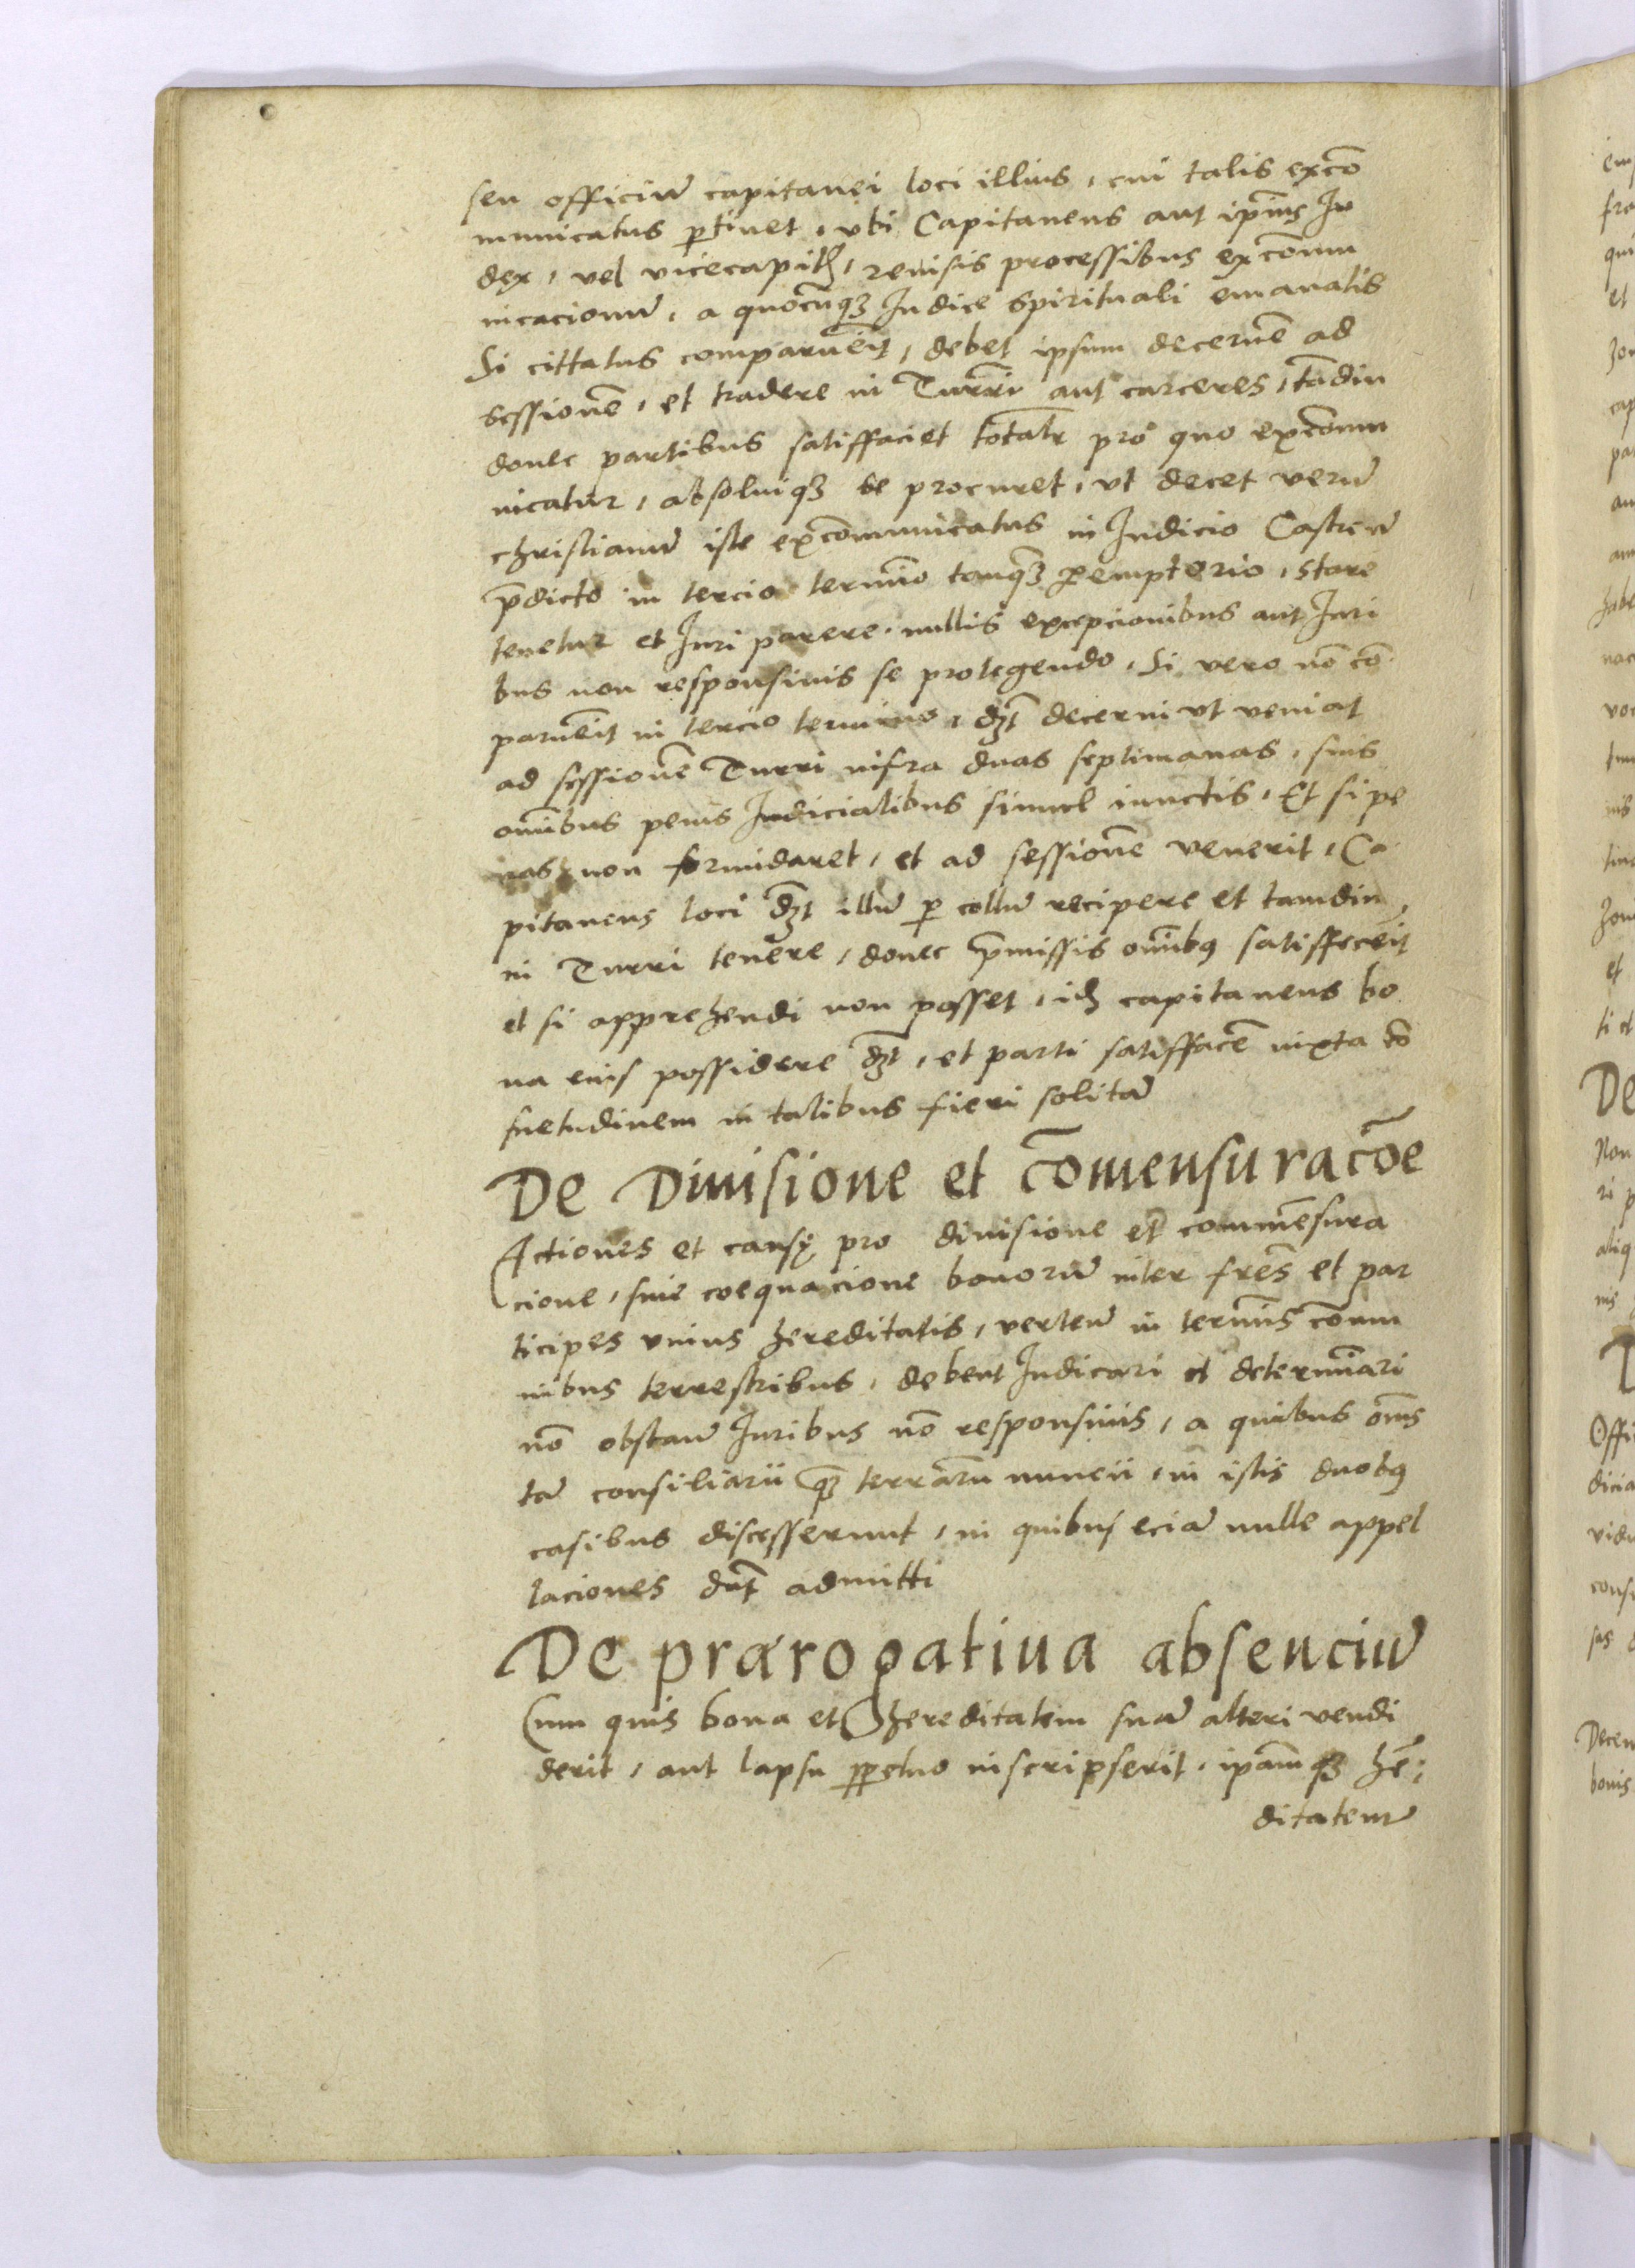 seu officiū capitanei loci illius, cui talis excō
municatus ꝑtinet, vbi Capitaneus aut ip̄ius Iu
dex, vel vicecapitꝭ, reuisis processibus excōmu
nicacionū, a quocūqꝫ Iudice spirituali emanatis
Si cittatus comparuēit, debet ipsum decernē ad
sessionē, et tradere in Turrī aut carceres, tādiu
donec partibus satisfaciet totalr̄ pro quo excōmu
nicatur, absoluiqꝫ se procuret, vt decet verū
christianū iste excōmmunicatus in Iudicio Castren̄
p̄dicto in tercio termīo tanqꝫ ꝑemptorio, stare
tenetur et Iuri parere. nullis excepcionibus aut Iuri
bus non responsiuis se protegendo. Si vero nō cō
paruēit in tercio termino, dꝫt decerni vt veniat
ad sessionē Turri infra duas septimanas, suis
omībus penis Iudicialibus simul iunctis, Et si pe
nas non formidaret, et ad sessionē venerit, Ca
pitaneus loci dꝫt illū ꝑ collū recipere et tamdiu
in Turri tenere, donec p̄missis omībꝰ satisfecēit
et si apprehendi non posset, idꝫ capitaneus bo
na eius possidere dꝫt, et parti satisfacē iuxta cō
suetudinem in talibus fieri solitā
De Diuisione et cōmensuracōe
Actiones et causę pro diuisione et commēsura
cione, siue coequacione bonorū inter frēs et par
ticipes vnius hereditatis, verten̄ in termīs cōmu
nibus terrestribus, debent Iudicari et determīari
nō obstan̄ Iuribus nō responsiuis, a quibus om̄s
tā consiliarii qꝫ terrarū nuncii, in istis duobꝰ
casibus discesserunt, in quibus eciā nulle appel
laciones dn̄t admitti
De prærogatiua absenciū
Cum quis bona et hereditatem suā alteri vendi
derit, aut lapsu ꝑpetuo inscripserit, ipāmqꝫ hē:
ditatem